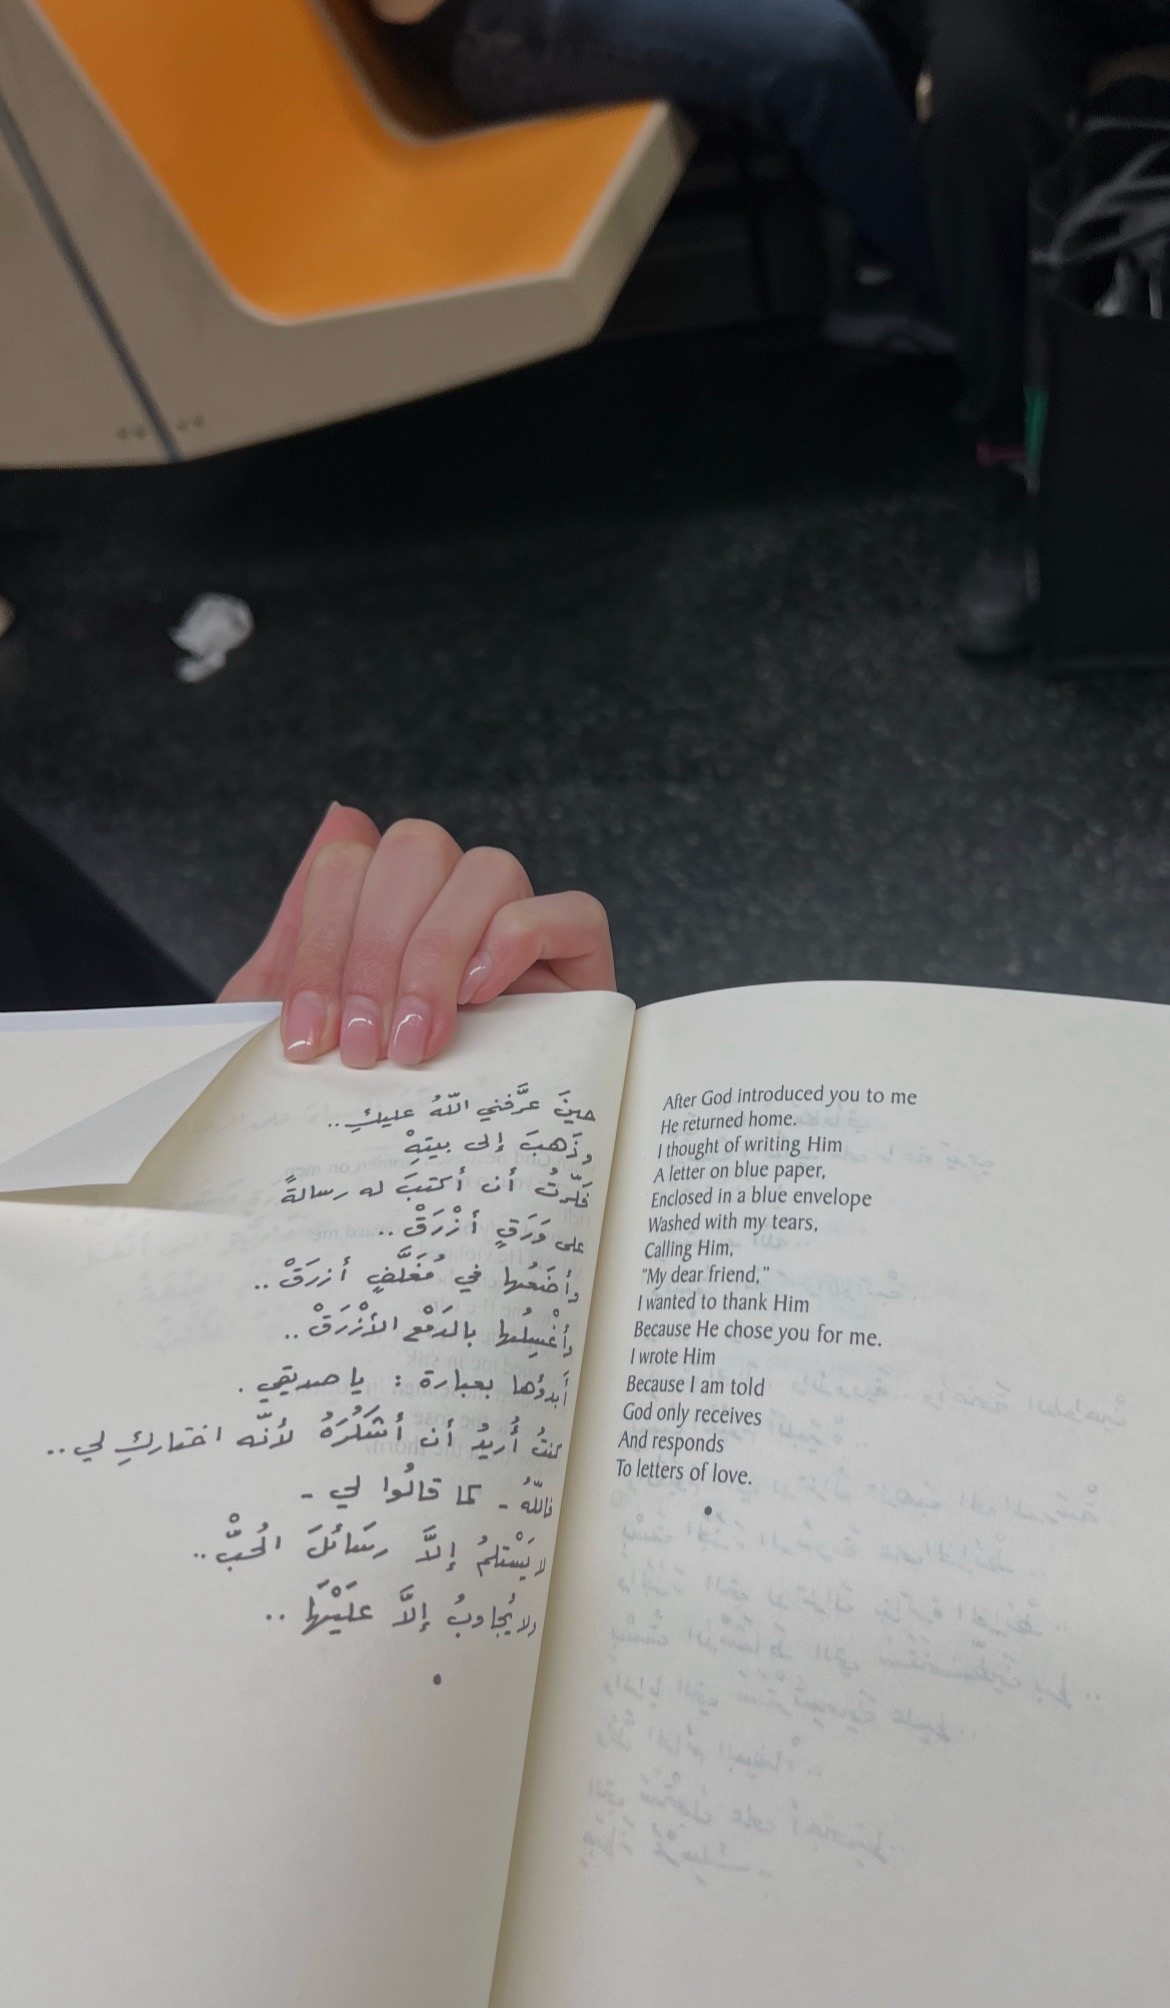 حينَ عرَّفني اللّهُ عليكِ..
وذَهبَ إلى بيتِهْ
فكّرتُ أن أكتبَ له رسالةً
على وَرَقٍ أزْرَقْ..
وأضَعُها في مُغَلَّفٍ أزرَقْ..
وأغْسِلُها بالدَمْع الأزْرَقْ..
أبدؤُها بعبارة : يا صديقي .
كنتُ أُريدُ أن أشكُرَهُ لأنّه اختاركِ لي..
فاللّهُ - كما قالُوا لي -
لا يَسْتلمُ إلاَّ رسَائلَ الحُبّْ..
ولا يُجاوبُ إلاَّ عَلَيْهَا ..
After God introduced you to me
He returned home.
I thought of writing Him
A letter on blue paper,
Enclosed in a blue envelope
Washed with my tears,
Calling Him,
"My dear friend,"
I wanted to thank Him
Because He chose you for me.
I wrote Him
Because I am told
God only receives
And responds
To letters of love.